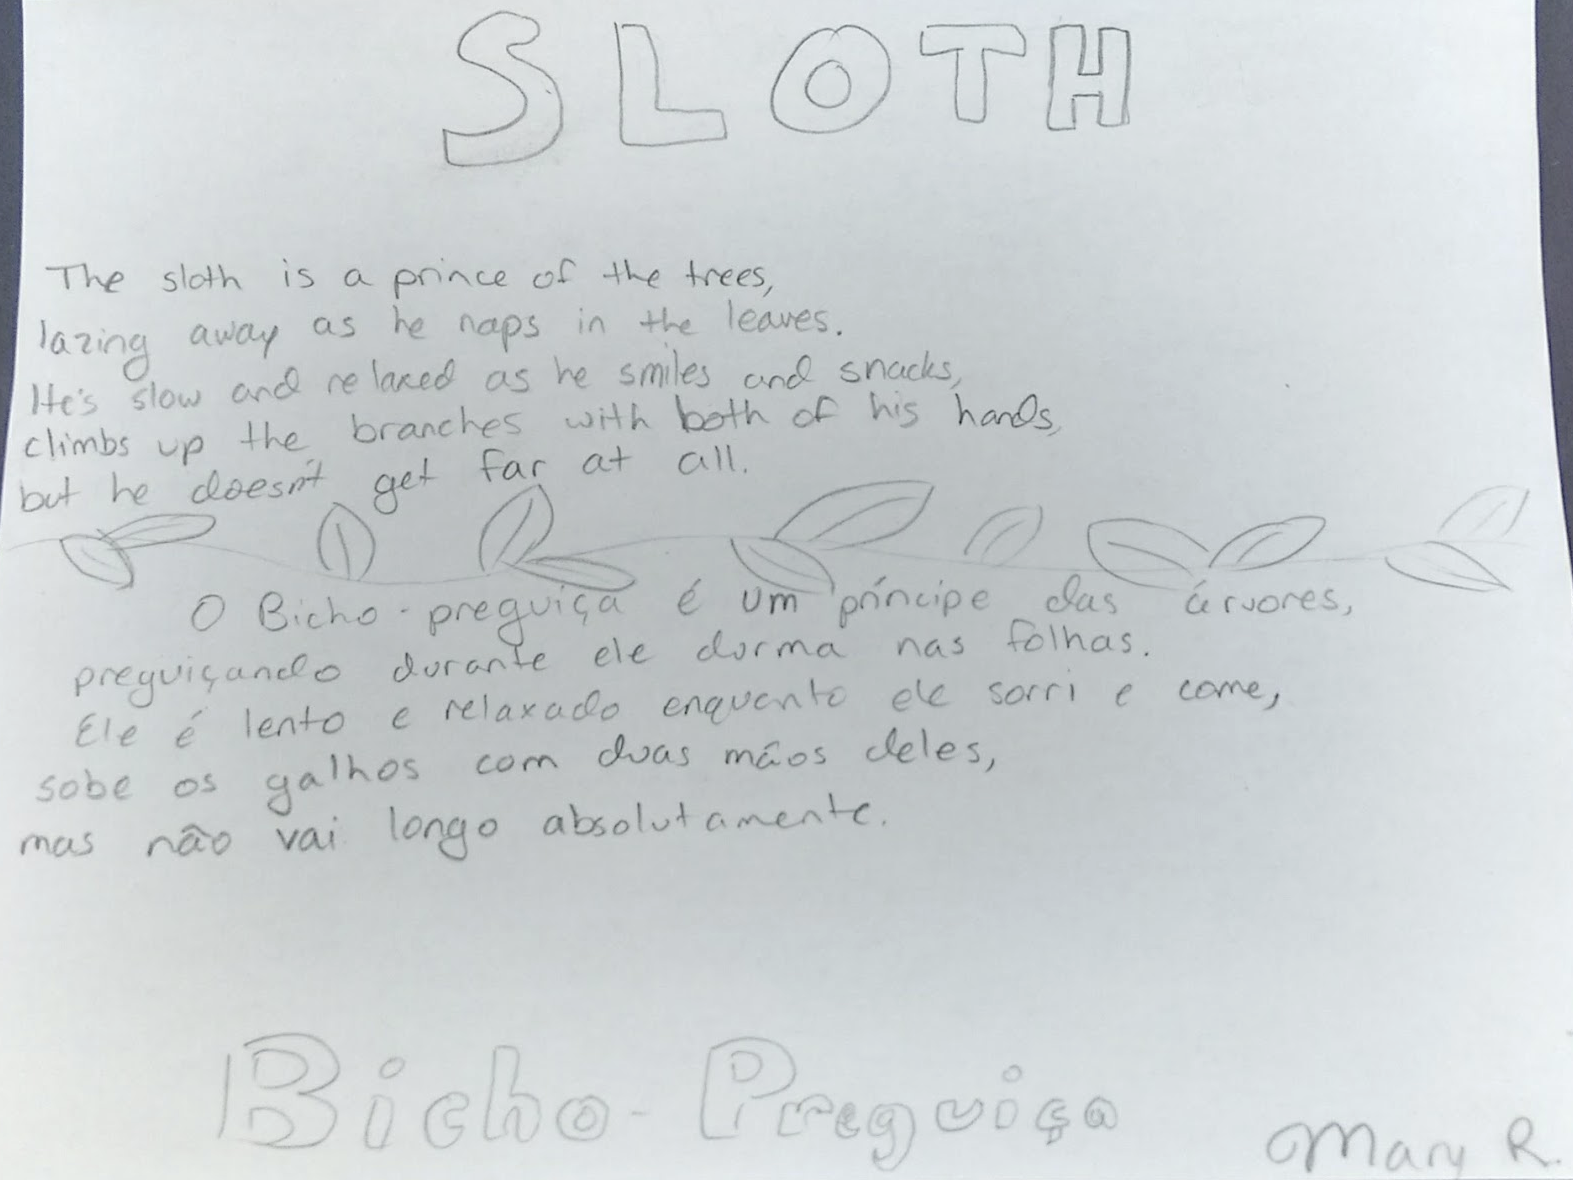 SLOTH
The sloth is a prince of the trees,
lazing away as he naps in the leaves.
He's slow and relaxed as he smiles and snacks,
climbs up the branches with both of his hands,
but he doesn't get far at all.
O Bicho-preguiça é um príncipe das árvores,
preguiçando durante ele dorma nas folhas.
Ele é lento e relaxado enquanto ele sorri e come,
sobe os galhos com duas mãos deles,
mas não vai longo absolutamente.
Bicho-Preguiça
Mary R.